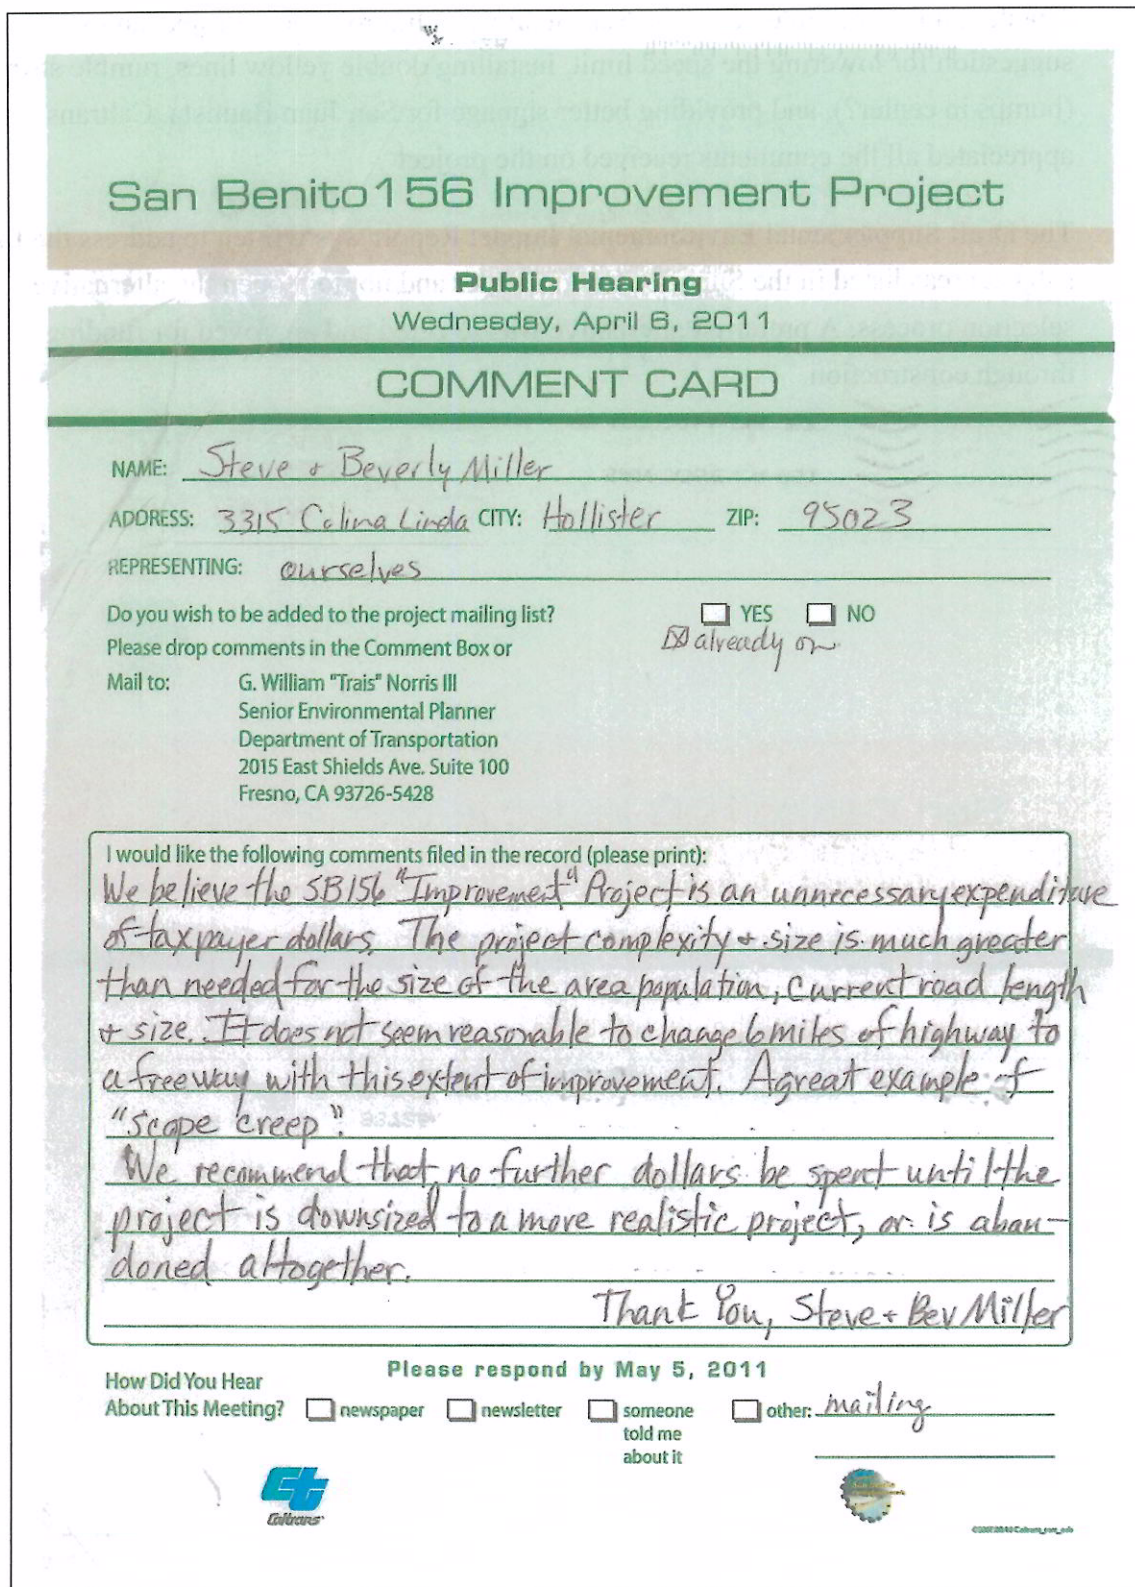 San Benito 156 Improvement Project
Public Hearing
Wednesday, April 6, 2011
COMMENT CARD
NAME: Steve + Beverly Miller
ADDRESS: 3315 Colina Linda CITY: Hollister ZIP: 95023
REPRESENTING: ourselves
Do you wish to be added to the project mailing list? YES NO
Please drop comments in the Comment Box or already on
Mail to: G. William "Trais" Norris III
Senior Environmental Planner
Department of Transportation
2015 East Shields Ave. Suite 100
Fresno, CA 93726-5428
I would like the following comments filed in the record (please print):
We believe the SB156 "Improvement" Project is an unnecessary expenditure
of taxpayer dollars. The project complexity + size is much greater
than needed for the size of the area population, current road length
+ size. It does not seem reasonable to change 6 miles of highway to
a freeway with this extent of improvement. A great example of
"scope creep".
We recommend that no further dollars be spent until the
project is downsized to a more realistic project, or is aban-
doned altogether.
Thank You, Steve + Bev Miller
Please respond by May 5, 2011
How Did You Hear
About This Meeting? newspaper newsletter someone other: mailing
told me
about it
Caltrans